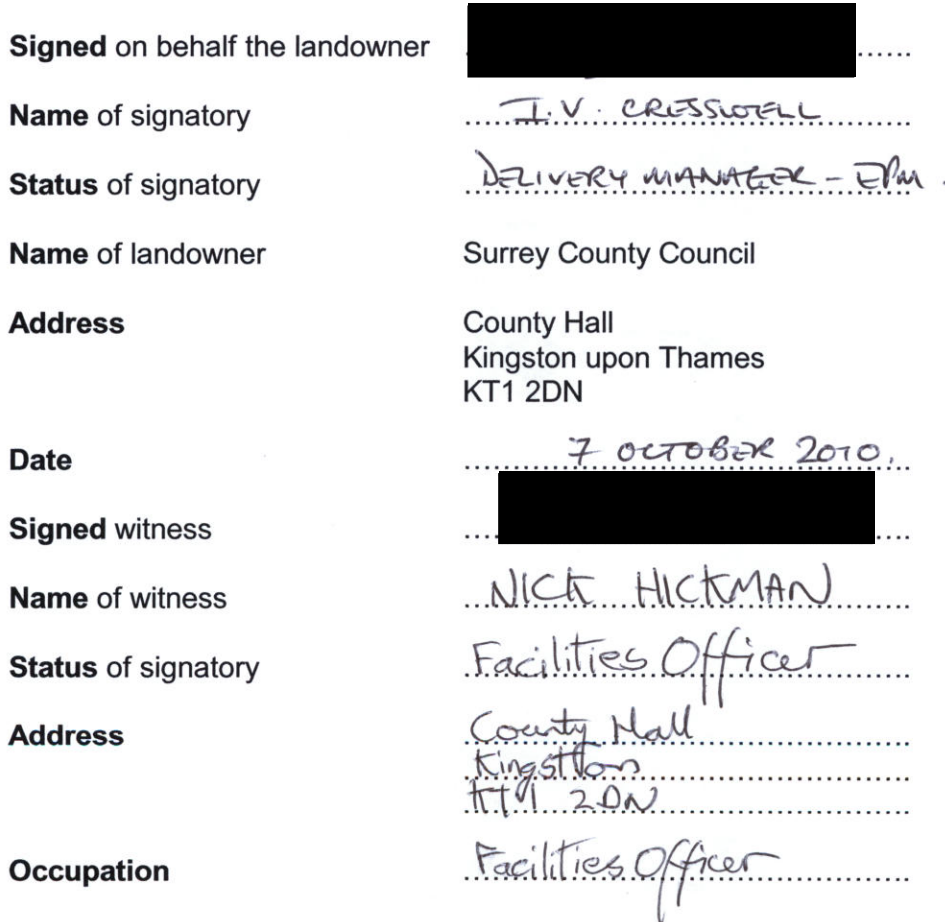 Signed on behalf the landowner
Name of signatory I.V. CRESSWELL
Status of signatory DELIVERY MANAGER - EPM.
Name of landowner Surrey County Council
Address County Hall
Kingston upon Thames
KT1 2DN
Date 7 OCTOBER 2010.
Signed witness
Name of witness NICK HICKMAN
Status of signatory Facilities Officer
Address County Hall
Kingston
KT1 2DN
Occupation Facilities Officer